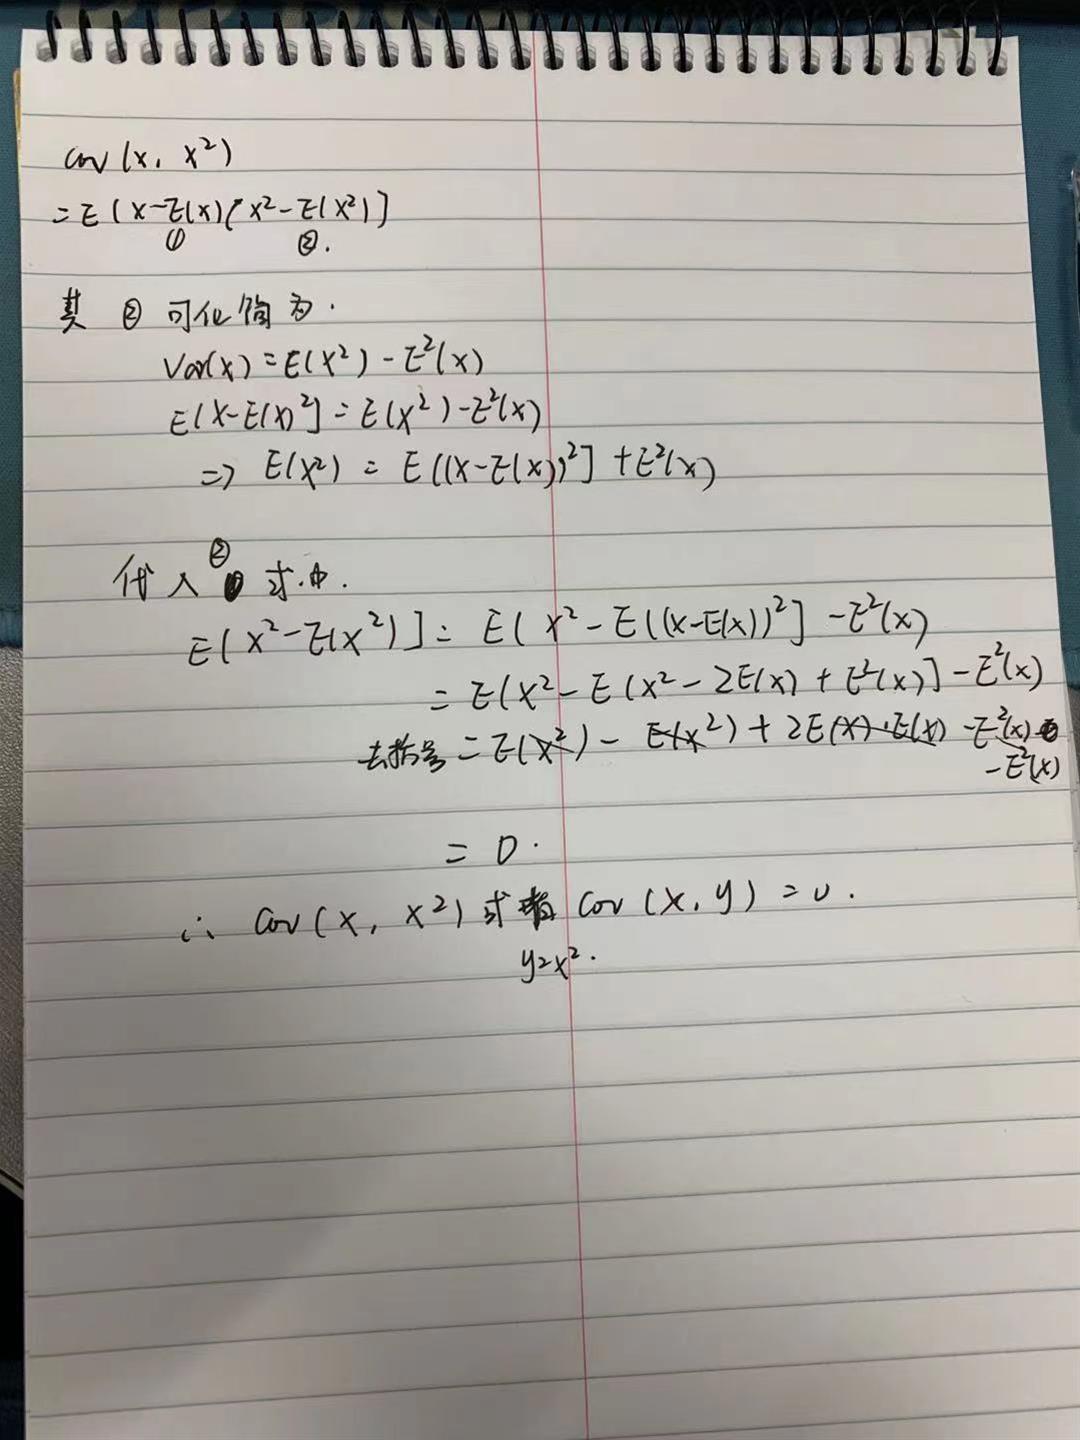 cov(x, x²)
= E[x-E(x)(x²-E(x²)]
① ②.
其 ② 可化简为.
Var(x) = E(x²) - E²(x)
E[X-E(x)²] = E(x²) - E²(x)
=> E(x²) = E[(x-E(x))²] + E²(x)
代入 ② 式中.
E[x²-E(x²)] = E[x²-E((x-E(x))²] - E²(x)
= E[x² - E(x² - 2E(x) + E²(x)] - E²(x)
去括号 = E(x²) - E(x²) + 2E(x)·E(x) - E²(x)
- E²(x)
= 0.
∴ cov(x, x²) 或者 cov(x, y) = 0.
y=x².